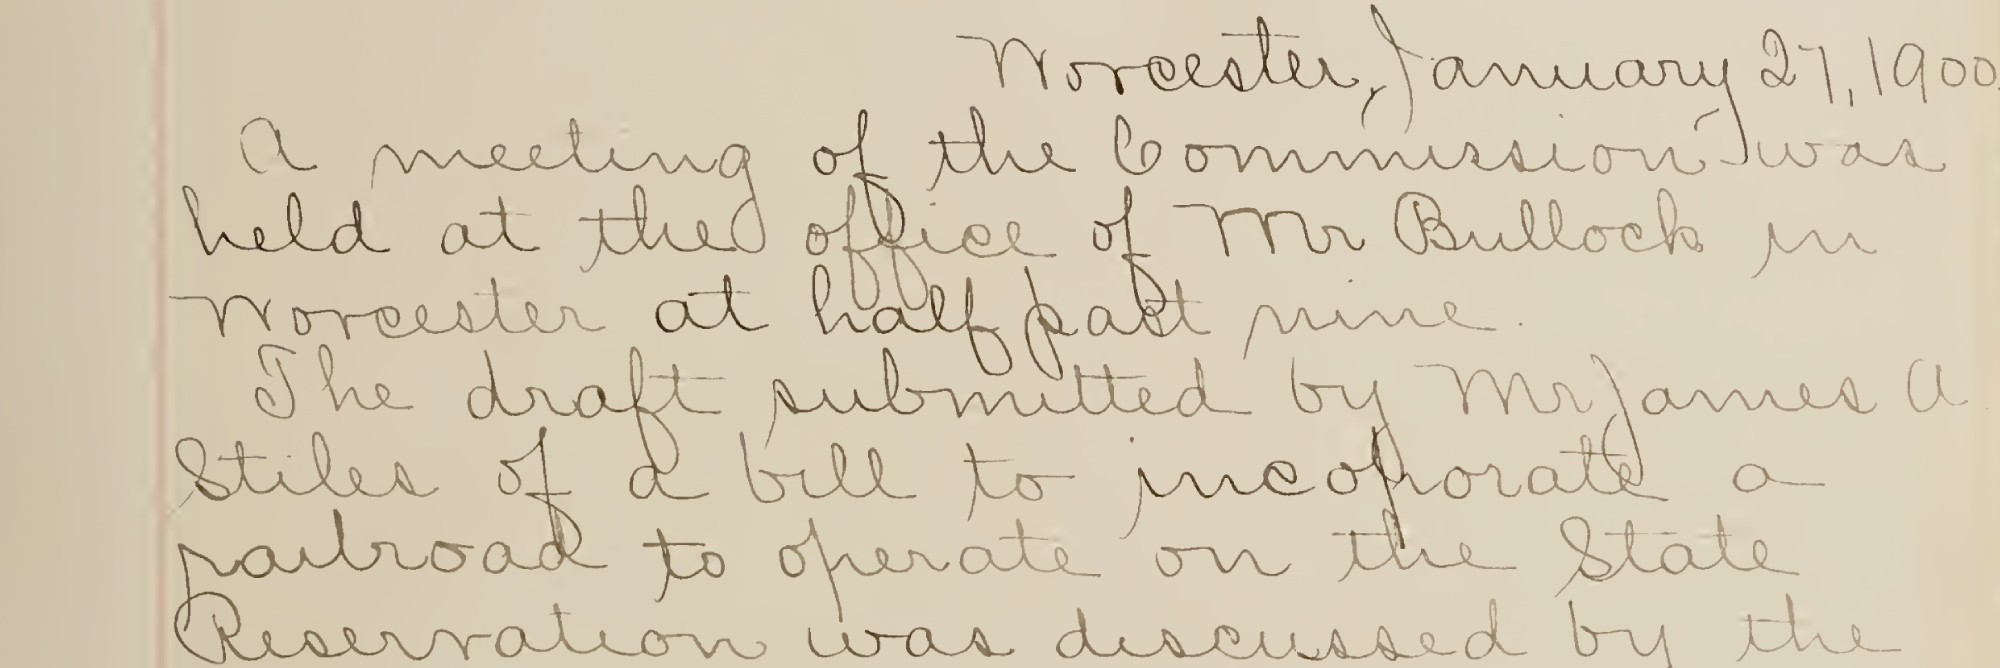 Worcester, January 27, 1900.
A meeting of the Commission was
held at the office of Mr Bullock in
Worcester at half past nine.
The draft submitted by Mr James A
Stiles of a bill to incoporate a
railroad to operate on the State
Reservation was discussed by the